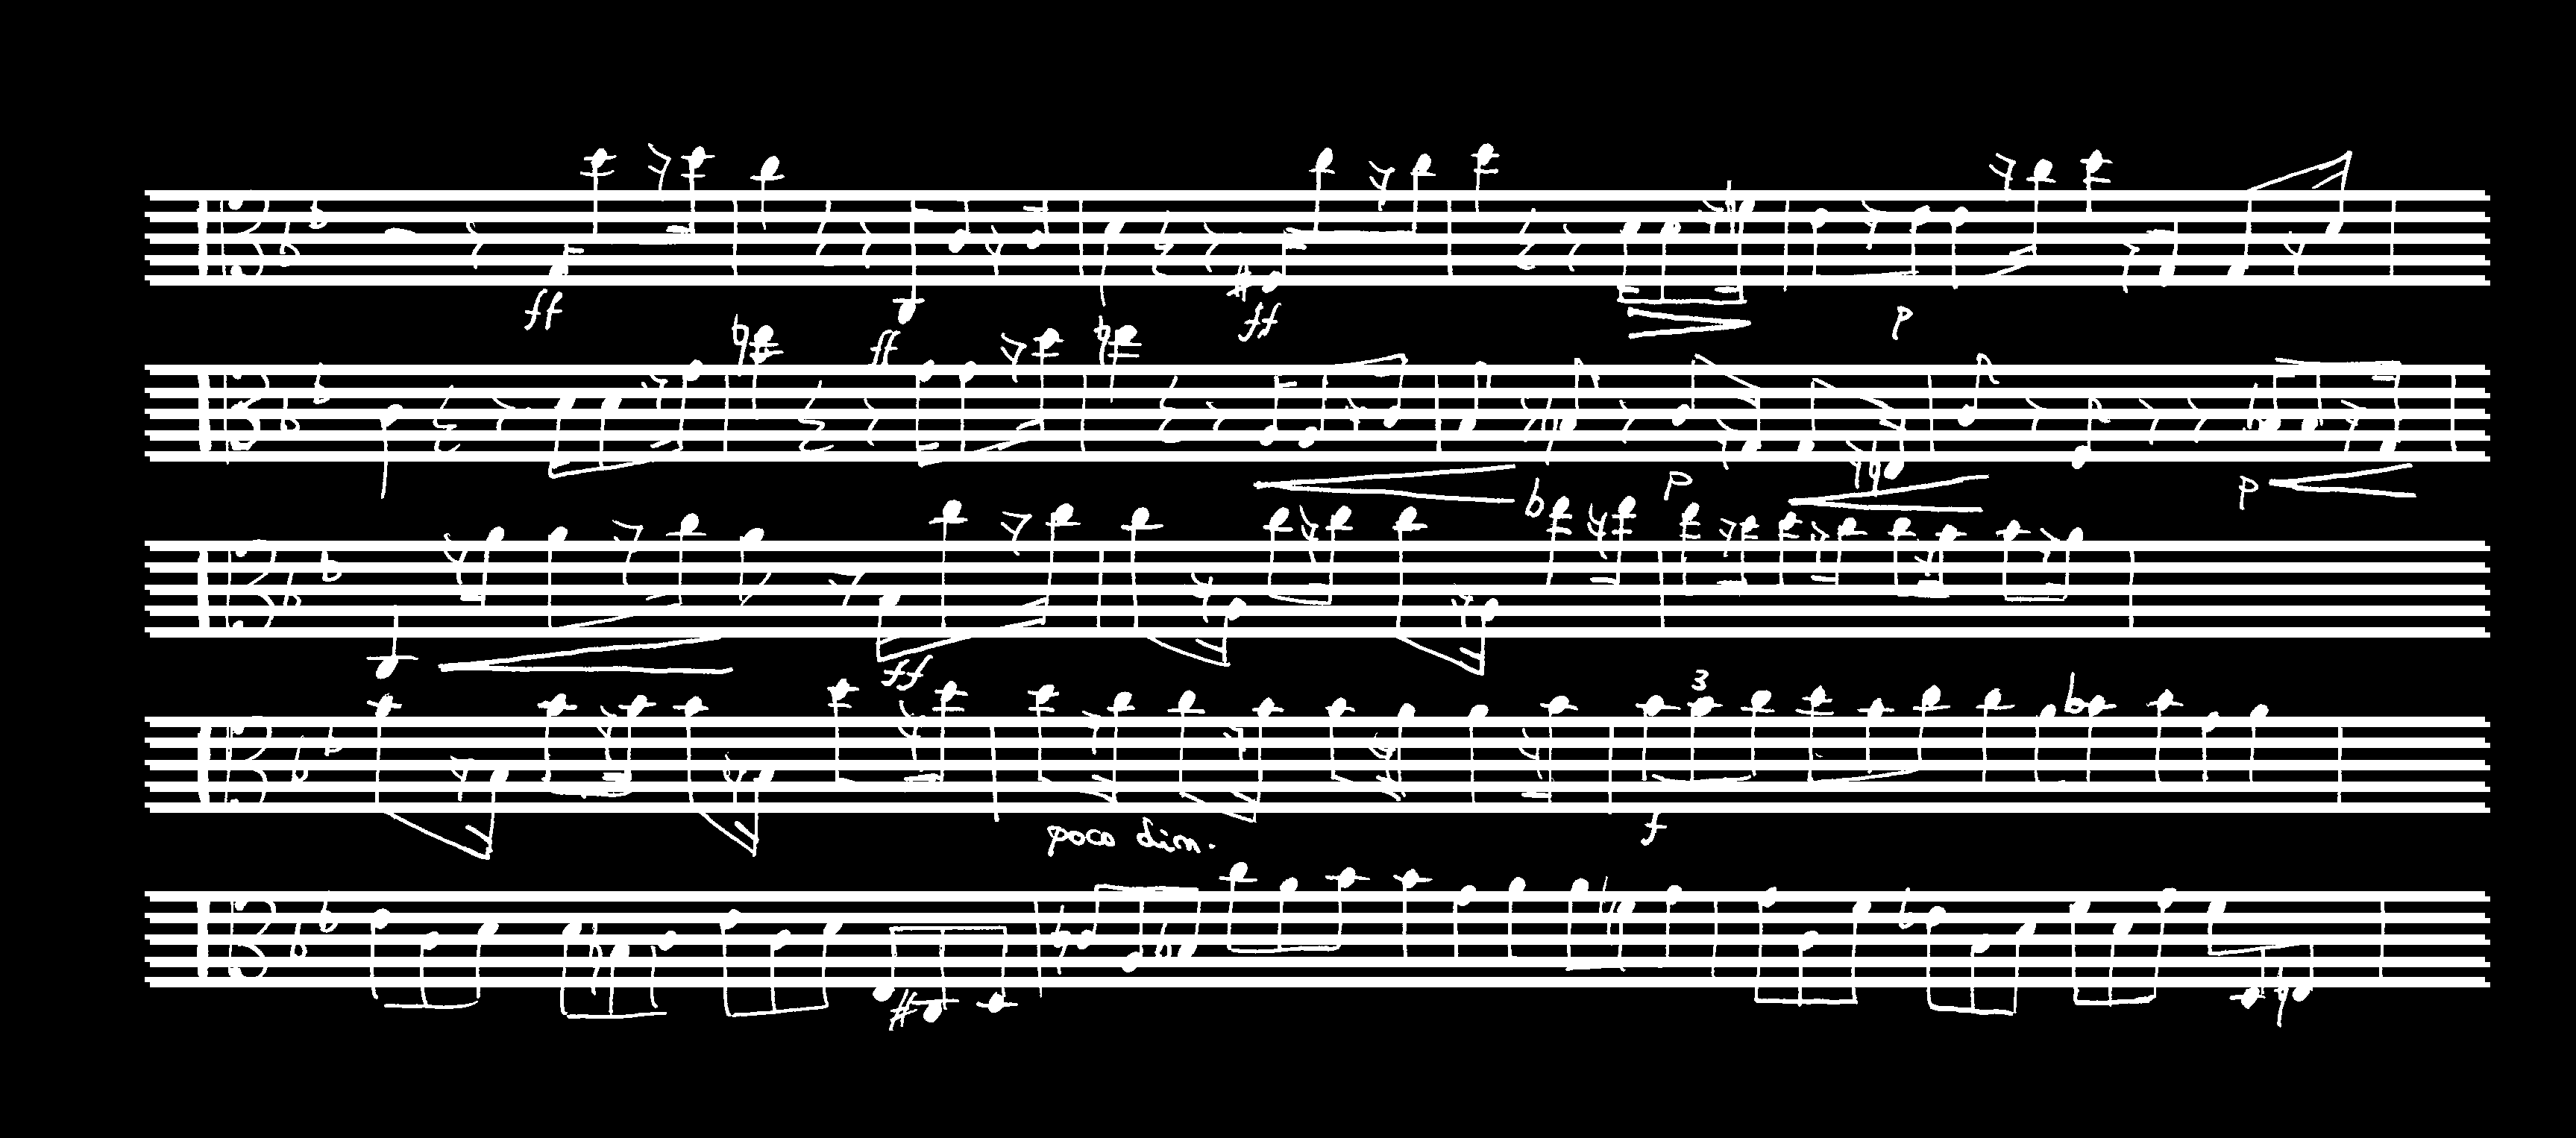 ff ff p
ff p p
ff
3
poco dim. f